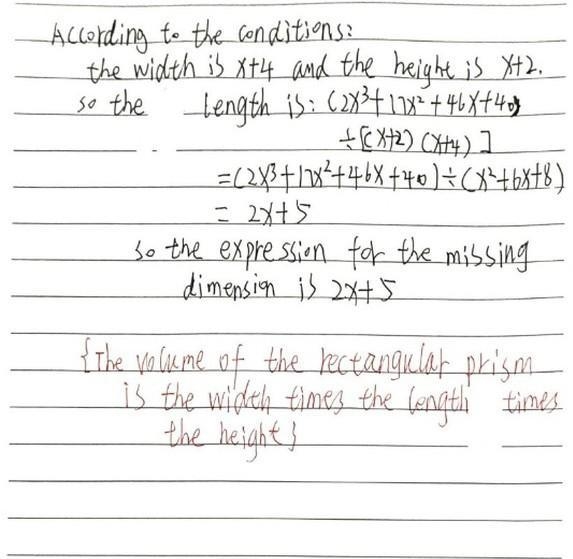 According to the conditions:
the width is x+4 and the height is x+2.
so the length is: (2x³+17x²+46x+40)
÷[(x+2)(x+4)]
=(2x³+17x²+46x+40)÷(x²+6x+8)
= 2x+5
so the expression for the missing
dimension is 2x+5
{The volume of the rectangular prism
is the width times the length times
the height}